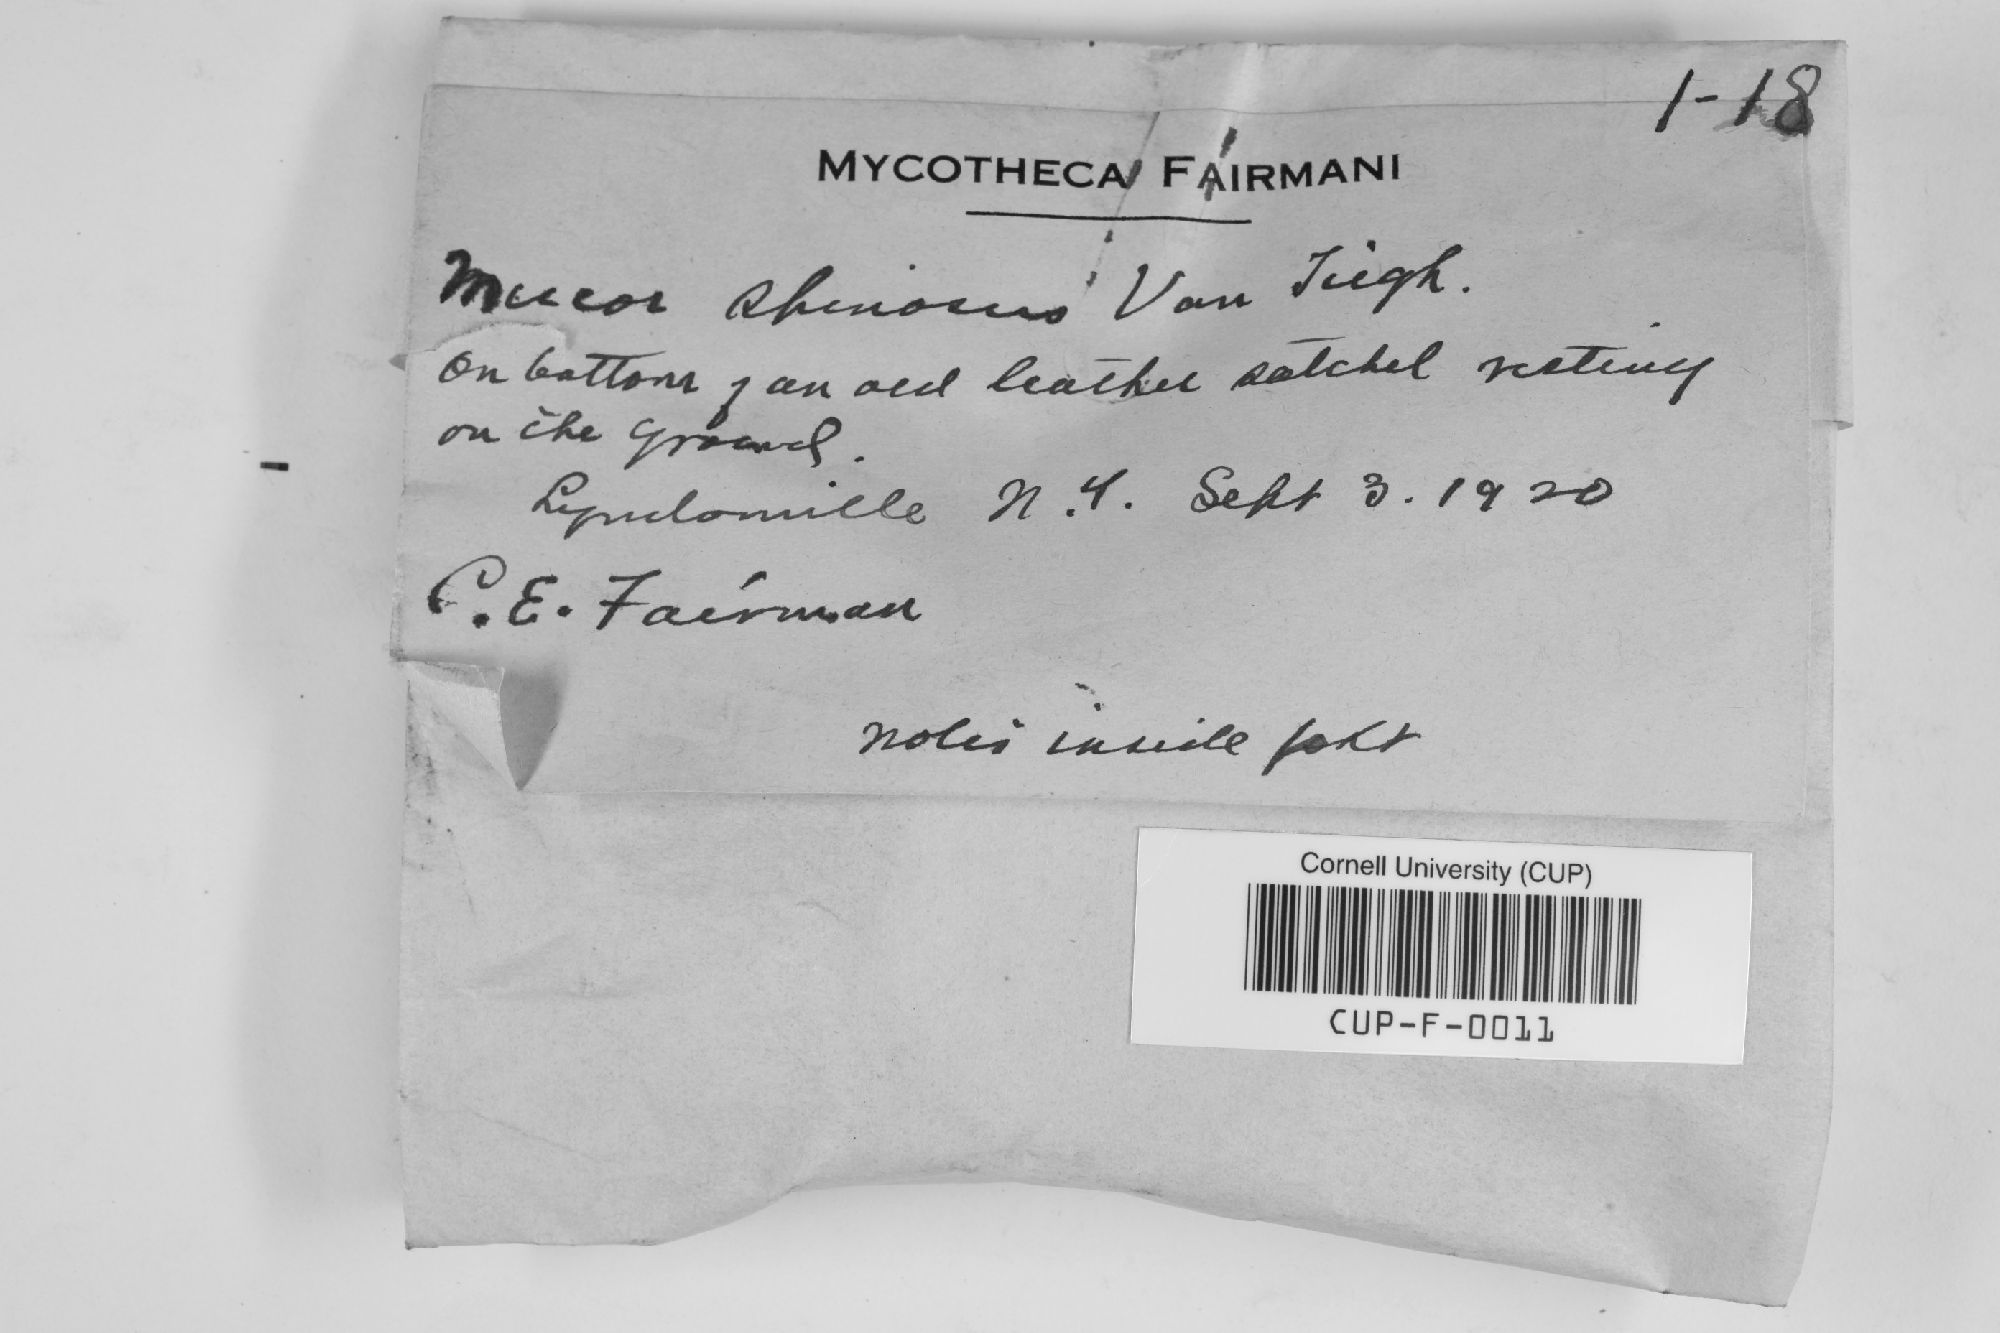 1-18
MYCOTHECA FAIRMANI
Mucor spinosus Van Tiegh.
On bottom of an old leather satchel resting
on the ground.
Lyndonville N.Y. Sept 3. 1920
C. E. Fairman
notes inside pkt
Cornell University (CUP)
CUP-F-0011